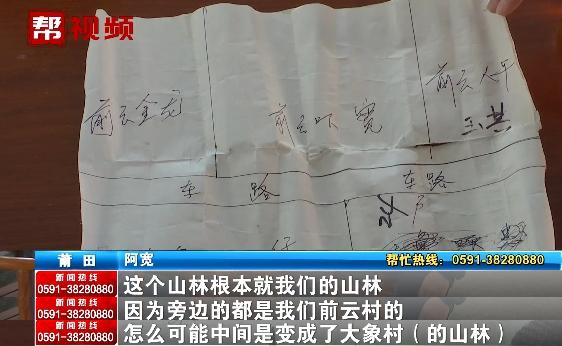 帮视频
前云金龙
前云吓宽
前云人午
三共
车路
车路
24户
莆田
阿宽
帮忙热线：0591-38280880
新闻热线
0591-38280880
新闻热线
0591-38280880
新闻热线
0591-38280880
这个山林根本就我们的山林
因为旁边的都是我们前云村的
怎么可能中间是变成了大象村（的山林）